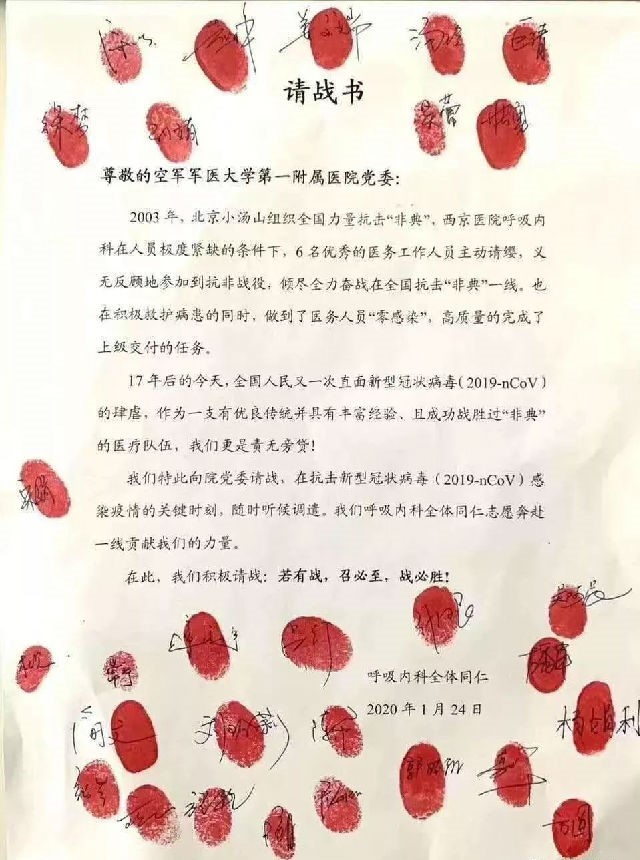 请战书
尊敬的空军军医大学第一附属医院党委：
2003年，北京小汤山组织全国力量抗击“非典”，西京医院呼吸内
科在人员极度紧缺的条件下，6名优秀的医务工作人员主动请缨，义
无反顾地参加到抗非战役，倾尽全力奋战在全国抗击“非典”一线。也
在积极救护病患的同时，做到了医务人员“零感染”，高质量的完成了
上级交付的任务。
17年后的今天，全国人民又一次直面新型冠状病毒（2019-nCoV）
的肆虐，作为一支有优良传统并具有丰富经验、且成功战胜过“非典”
的医疗队伍，我们更是责无旁贷！
我们特此向院党委请战，在抗击新型冠状病毒（2019-nCoV）感
染疫情的关键时刻，随时听候调遣。我们呼吸内科全体同仁志愿奔赴
一线贡献我们的力量。
在此，我们积极请战：若有战，召必至，战必胜！
呼吸内科全体同仁
2020年1月24日